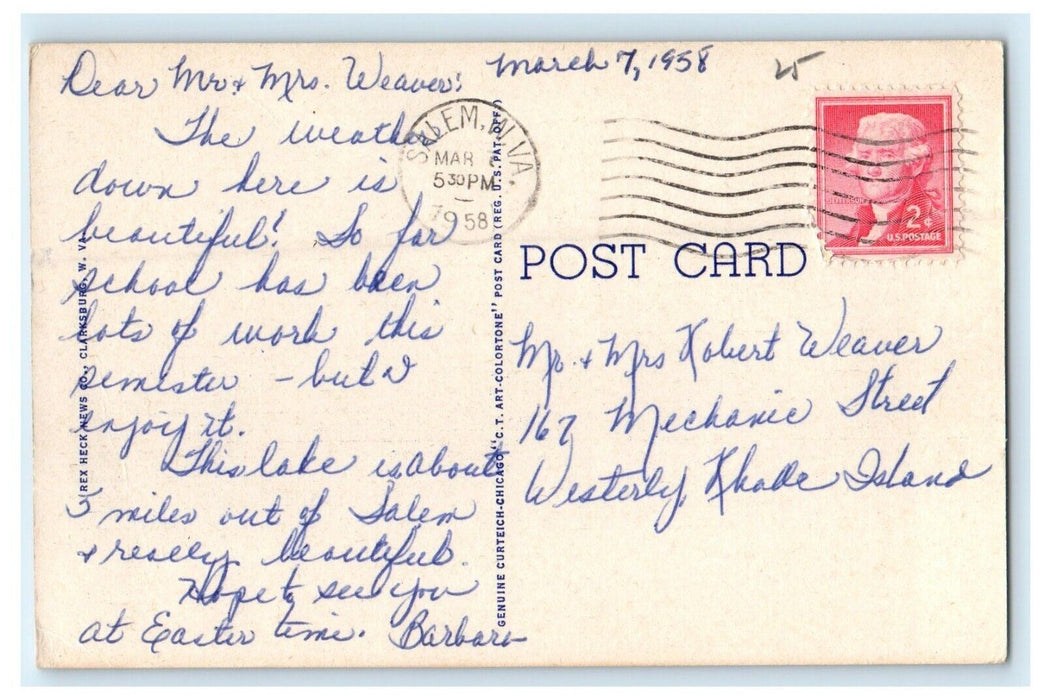 Dear Mr. + Mrs. Weaver:
March 7, 1958
25
The weather
down here is
beautiful! So far
school has been
lots of work this
semester - but I
enjoy it.
This lake is about
5 miles out of Salem
+ really beautiful.
Hope to see you
at Easter time. Barbara
SALEM, W. VA.
MAR
5 30 PM
1958
JEFFERSON
2¢
U.S. POSTAGE
POST CARD
Mr. + Mrs Robert Weaver
Mechanic Street
Westerly, Rhode Island
REX HECK NEWS CO., CLARKSBURG, W. VA.
GENUINE CURTEICH-CHICAGO "C.T. ART-COLORTONE" POST CARD (REG. U.S. PAT. OFF.)